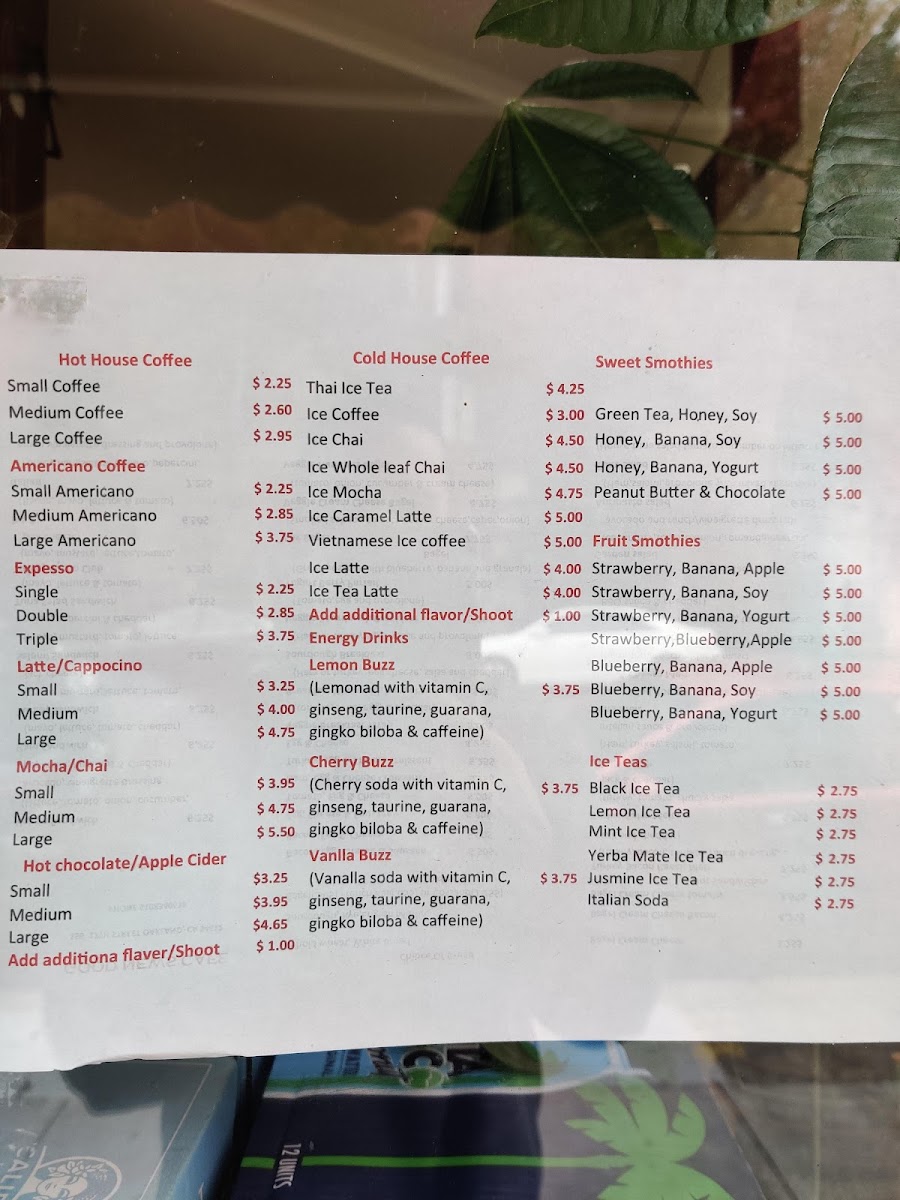 Hot House Coffee
Small Coffee $ 2.25
Medium Coffee $ 2.60
Large Coffee $ 2.95
Americano Coffee
Small Americano $ 2.25
Medium Americano $ 2.85
Large Americano $ 3.75
Expesso
Single $ 2.25
Double $ 2.85
Triple $ 3.75
Latte/Cappocino
Small $ 3.25
Medium $ 4.00
Large $ 4.75
Mocha/Chai
Small $ 3.95
Medium $ 4.75
Large $ 5.50
Hot chocolate/Apple Cider
Small $3.25
Medium $3.95
Large $4.65
Add additiona flaver/Shoot $ 1.00
Cold House Coffee
Thai Ice Tea $ 4.25
Ice Coffee $ 3.00
Ice Chai $ 4.50
Ice Whole leaf Chai $ 4.50
Ice Mocha $ 4.75
Ice Caramel Latte $ 5.00
Vietnamese Ice coffee $ 5.00
Ice Latte $ 4.00
Ice Tea Latte $ 4.00
Add additional flavor/Shoot $ 1.00
Energy Drinks
Lemon Buzz
(Lemonad with vitamin C, $ 3.75
ginseng, taurine, guarana,
gingko biloba & caffeine)
Cherry Buzz
(Cherry soda with vitamin C, $ 3.75
ginseng, taurine, guarana,
gingko biloba & caffeine)
Vanlla Buzz
(Vanalla soda with vitamin C, $ 3.75
ginseng, taurine, guarana,
gingko biloba & caffeine)
Sweet Smothies
Green Tea, Honey, Soy $ 5.00
Honey, Banana, Soy $ 5.00
Honey, Banana, Yogurt $ 5.00
Peanut Butter & Chocolate $ 5.00
Fruit Smothies
Strawberry, Banana, Apple $ 5.00
Strawberry, Banana, Soy $ 5.00
Strawberry, Banana, Yogurt $ 5.00
Strawberry,Blueberry,Apple $ 5.00
Blueberry, Banana, Apple $ 5.00
Blueberry, Banana, Soy $ 5.00
Blueberry, Banana, Yogurt $ 5.00
Ice Teas
Black Ice Tea $ 2.75
Lemon Ice Tea $ 2.75
Mint Ice Tea $ 2.75
Yerba Mate Ice Tea $ 2.75
Jusmine Ice Tea $ 2.75
Italian Soda $ 2.75
12 UNITS